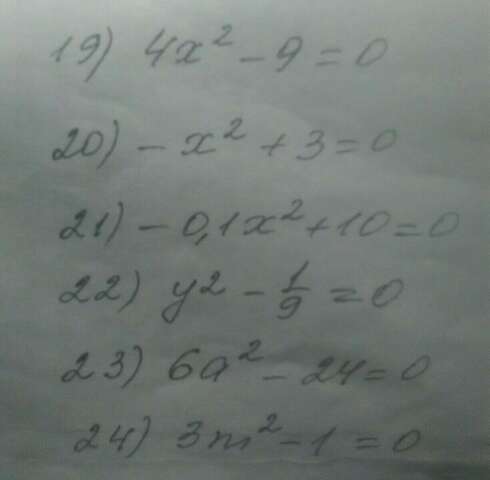 19) 4x² - 9 = 0
20) - x² + 3 = 0
21) - 0,1x² + 10 = 0
22) y² - 1/9 = 0
23) 6a² - 24 = 0
24) 3m² - 1 = 0